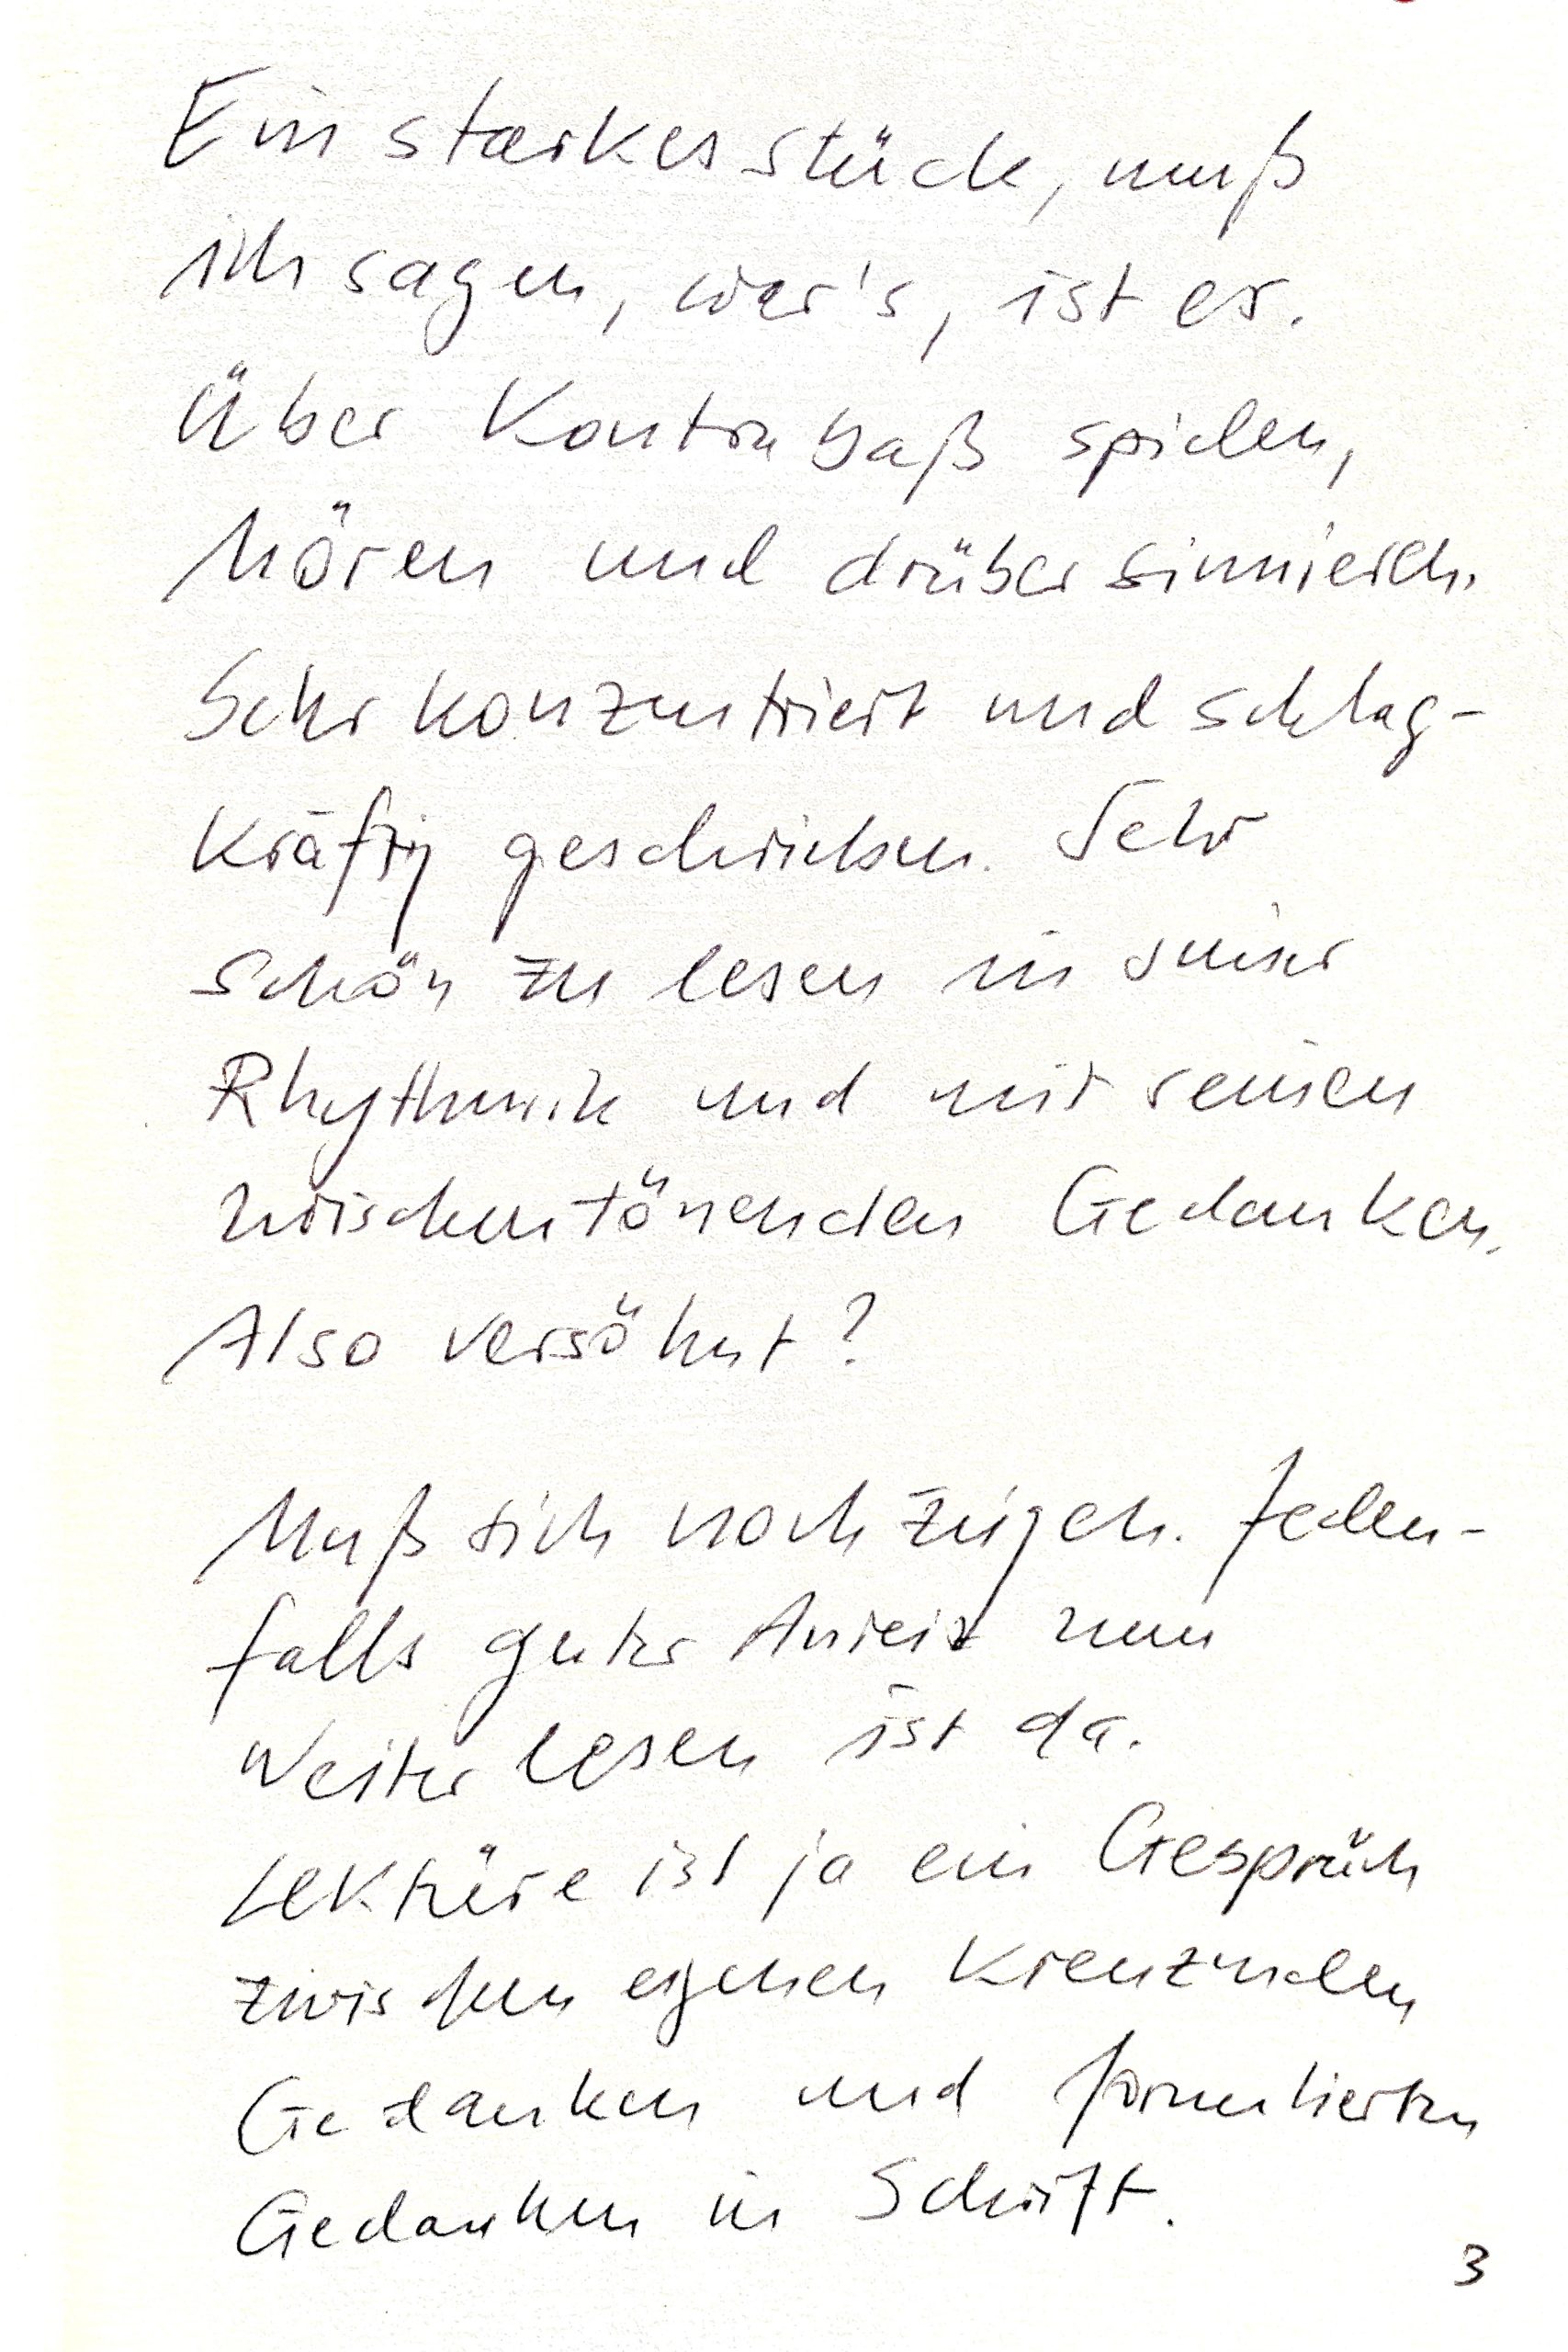 Ein starkes Stück, muß
ich sagen, war's, ist es.
Über Kontrabaß spielen,
hören und drüber sinnieren.
Sehr konzentriert und schlag-
kräftig geschrieben. Sehr
schön zu lesen in seiner
Rhythmik und mit seinen
zwischentönenden Gedanken.
Also versöhnt?
Muß sich noch zeigen. Jeden-
falls guter Anreiz zum
Weiterlesen ist da.
Lektüre ist ja ein Gespräch
zwischen eigenen kreuzenden
Gedanken und formulierten
Gedanken in Schrift.
3